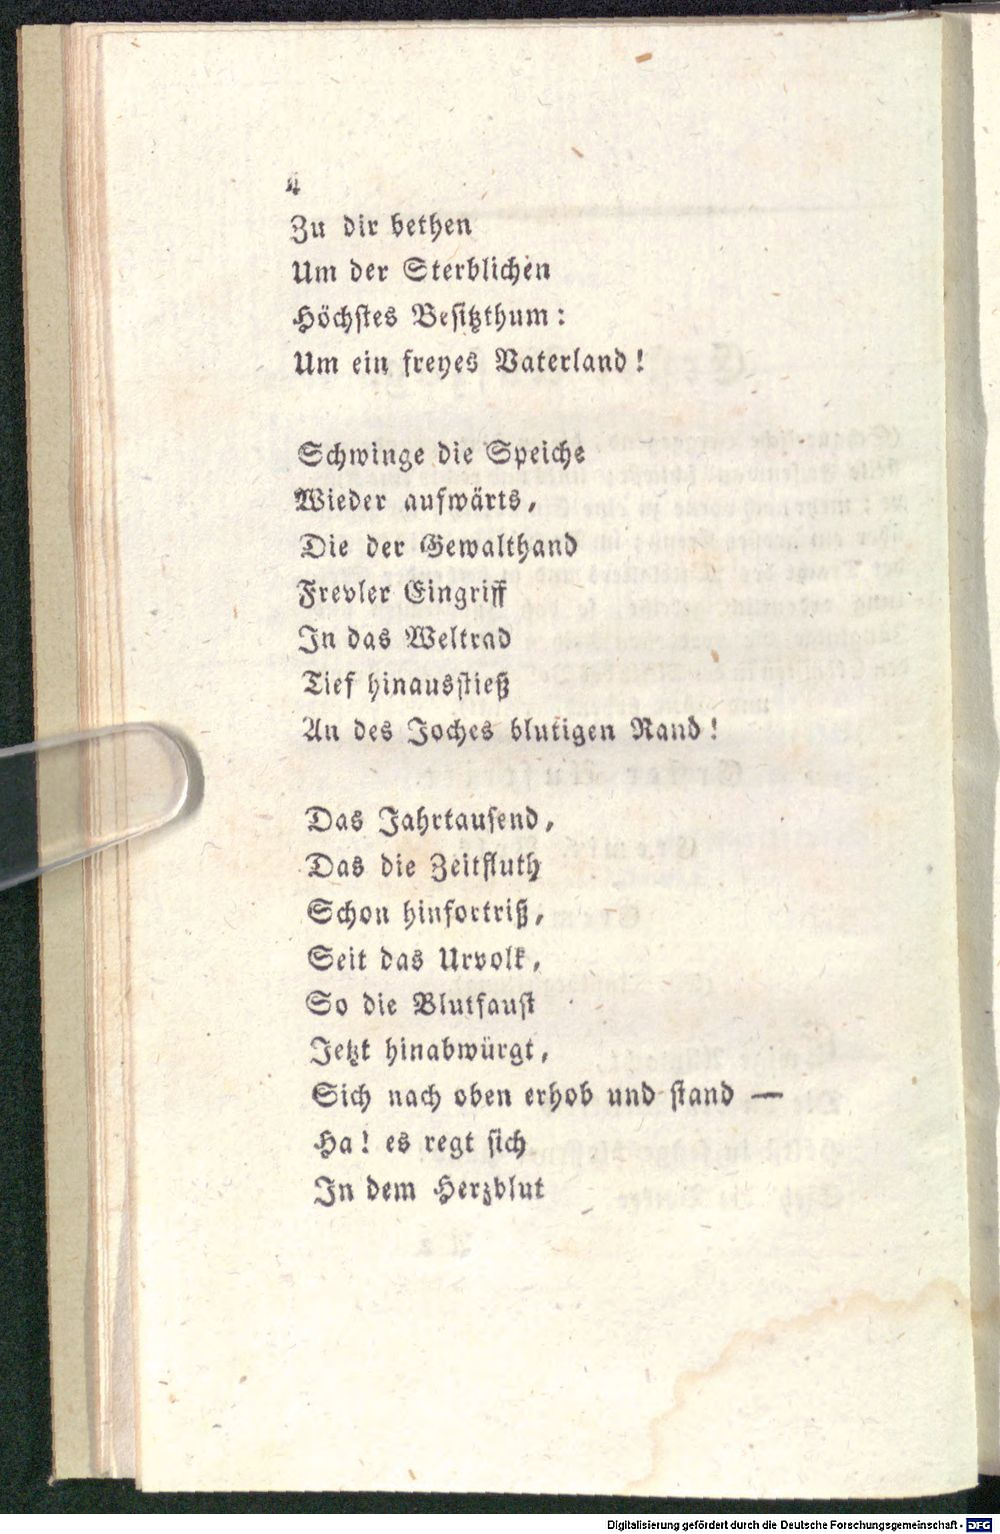 4
Zu dir bethen
Um der Sterblichen
Höchstes Besitzthum:
Um ein freyes Vaterland!
Schwinge die Speiche
Wieder aufwärts,
Die der Gewalthand
Frevler Eingriff
In das Weltrad
Tief hinausstieß
An des Joches blutigen Rand!
Das Jahrtausend,
Das die Zeitfluth
Schon hinfortriß,
Seit das Urvolk,
So die Blutfaust
Jetzt hinabwürgt,
Sich nach oben erhob und stand —
Ha! es regt sich
In dem Herzblut
Digitalisierung gefördert durch die Deutsche Forschungsgemeinschaft - DFG